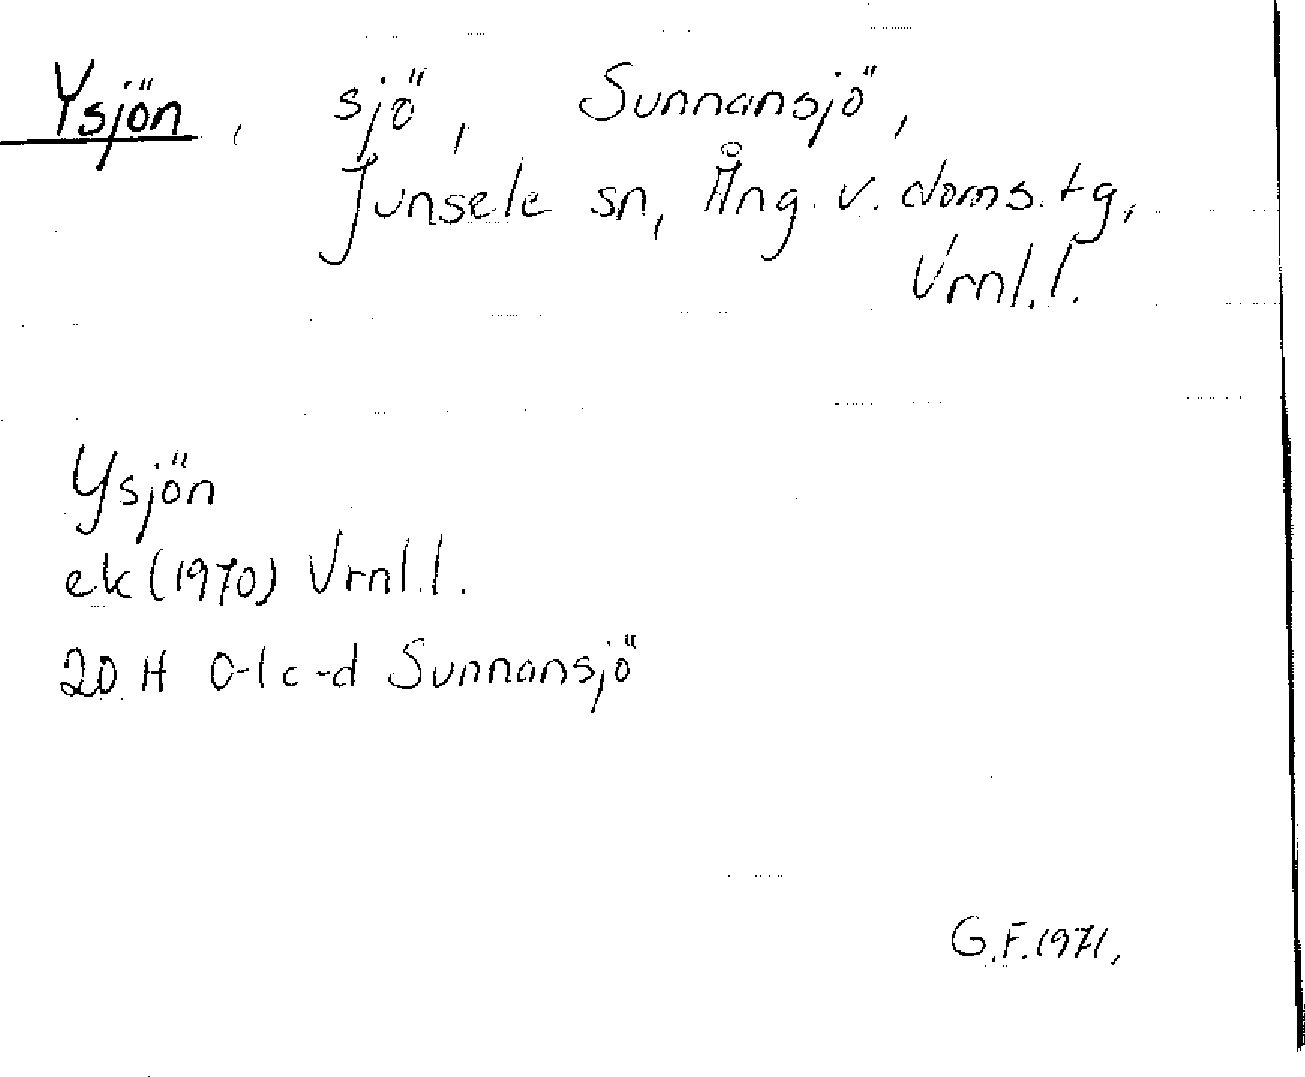 Ysjön, sjö, Sunnansjö,
Junsele sn, Ång. v. doms.tg,
Vrnl.l.
Ysjön
ek (1970) Vrnl.l.
20 H 0-1 c-d Sunnansjö
G.F. 1971,